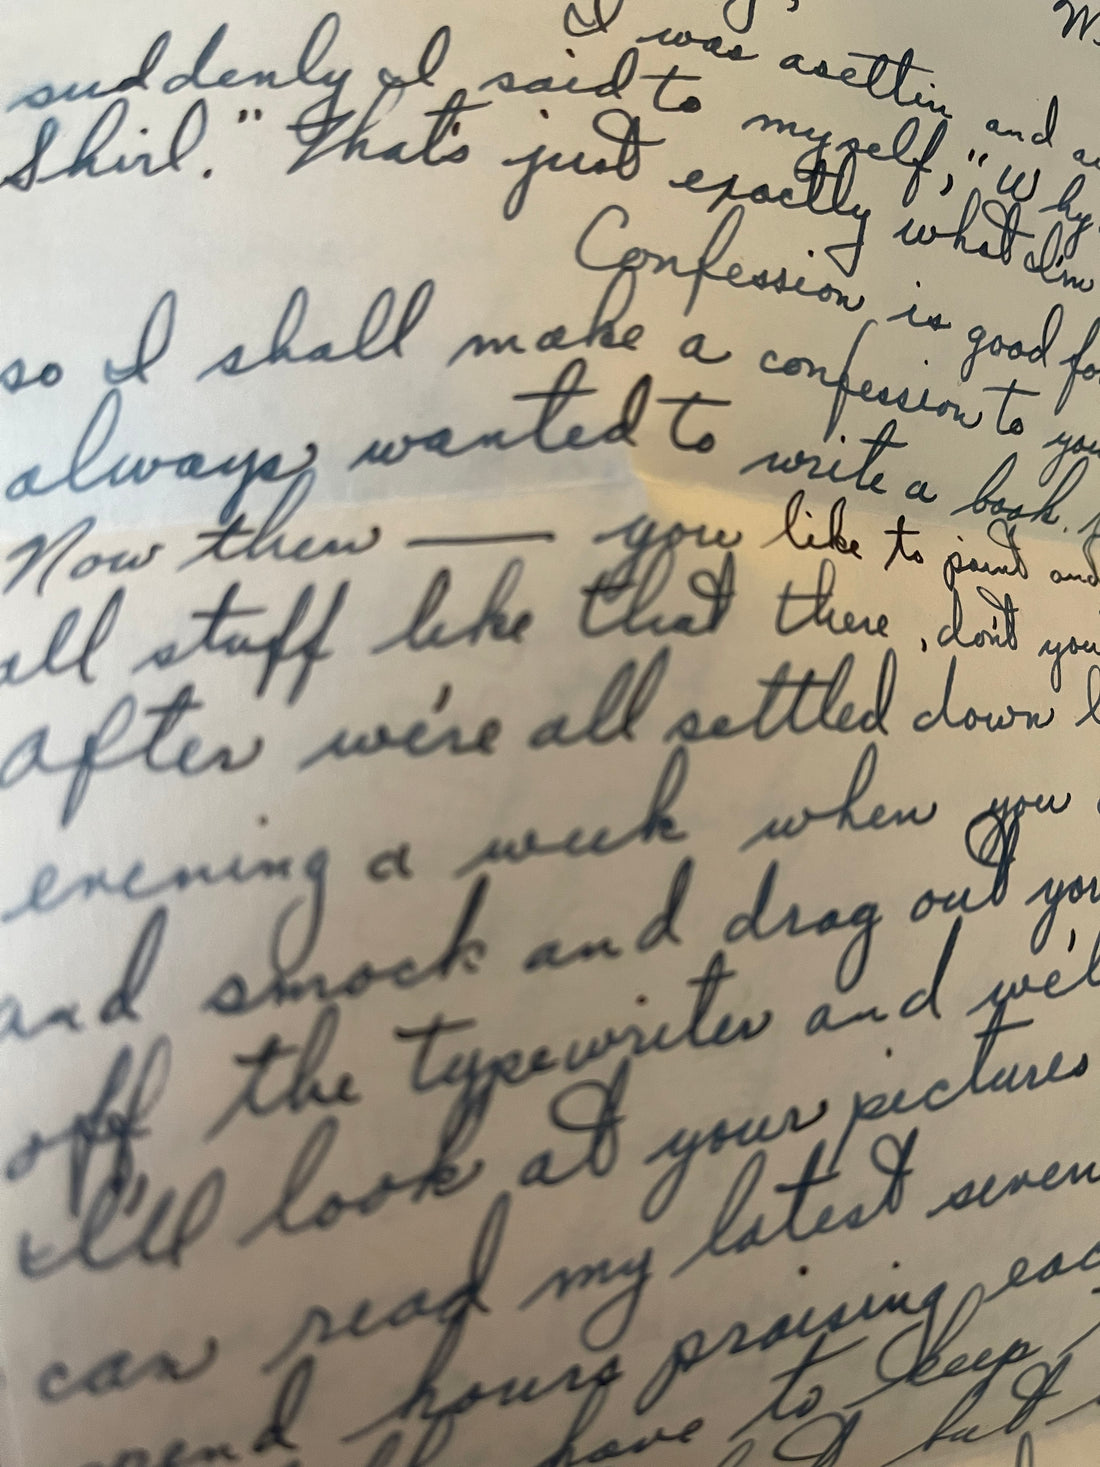 I was asettin and
suddenly I said to myself, "Why
Shirl." That's just exactly what I'm
Confession is good for
so I shall make a confession to you
always wanted to write a book.
Now then — you like to paint and
all stuff like that there, don't you
After we're all settled down
evening a week when you
and smock and drag out
off the typewriter and we'll
I'll look at your pictures
can read my latest seven
hours praising
have to keep
but